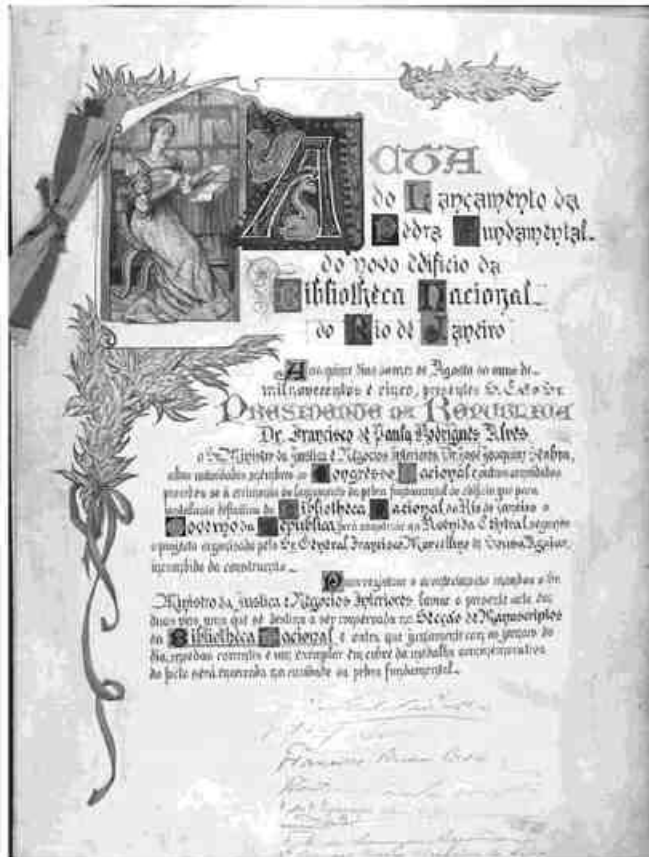 ACTA
do Lançamento da
Pedra Fundamental
do novo edificio da
Bibliotheca Nacional
do Rio de Janeiro
Aos quinze dias do mez de Agosto do anno de
mil novecentos e cinco, presentes S. Exª o Sr.
PRESIDENTE DA REPUBLICA
Dr. Francisco de Paula Rodrigues Alves
o Sr. Ministro da Justiça e Negocios Interiores Dr. José Joaquim Seabra,
altas autoridades, membros do Congresso Nacional e outros convidados
procedeu se á cerimonia do lançamento da pedra fundamental do edificio que para
installação definitiva da Bibliotheca Nacional do Rio de Janeiro o
Governo da Republica fará construir na Avenida Central segundo
o projecto organisado pelo Sr. General Francisco Marcellino de Sousa Aguiar,
incumbido da construcção
Para registrar o acontecimento mandou o Sr.
Ministro da Justiça e Negocios Interiores lavrar a presente acta em
duas vias, uma que se destina a ser conservada na Secção de Manuscriptos
da Bibliotheca Nacional e outra que juntamente com os jornaes do
dia, moedas correntes e um exemplar em cobre da medalha commemorativa
do facto será encerrada na cavidade da pedra fundamental